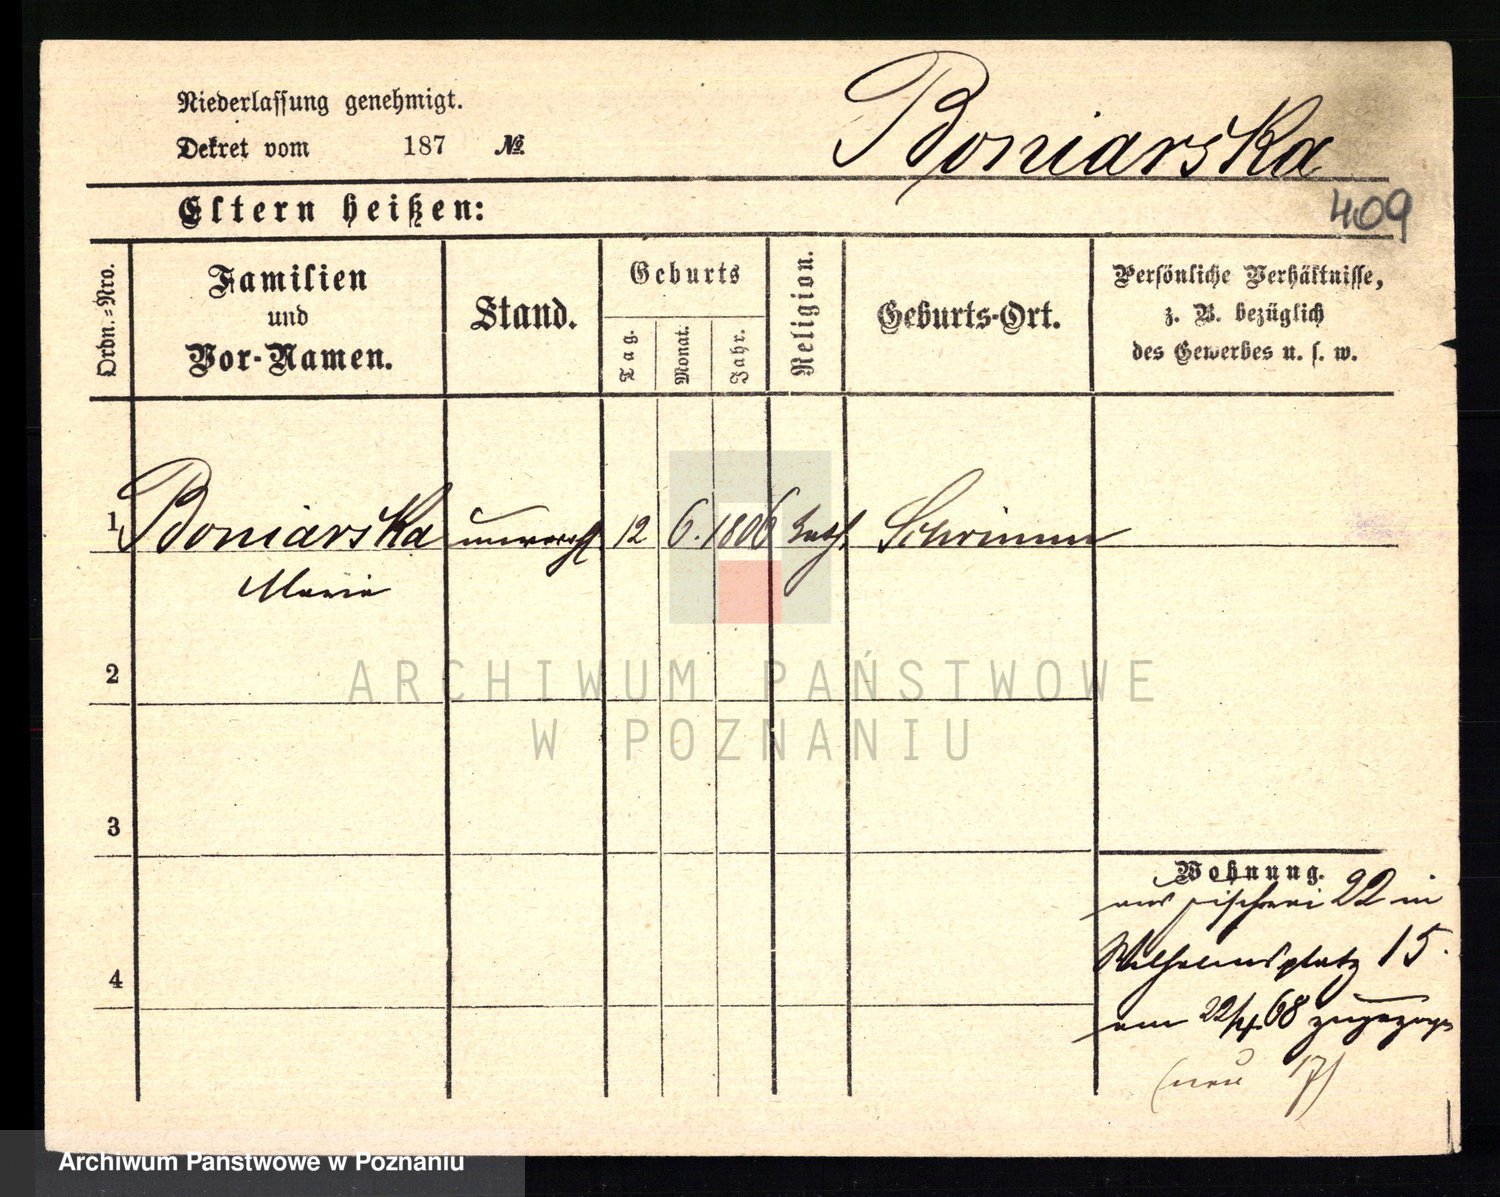 Niederlassung genehmigt.
Dekret vom 187 №
Boniarska
409
Eltern heißen:
Ordn.-Nro.
Familien
und
Vor-Namen.
Stand.
Geburts
Tag.
Monat.
Jahr.
Religion.
Geburts-Ort.
Persönliche Verhältnisse,
z. B. bezüglich
des Gewerbes u. s. w.
1 Boniarska unvereh 12 6. 1806 kath. Schrimm
Marie
2
ARCHIWUM PAŃSTWOWE
W POZNANIU
3
Wohnung.
aus Fischerei 22 in
Wilhelmsplatz 15.
4
am 22/4.68 zugezogen
(neu 17)
Archiwum Państwowe w Poznaniu